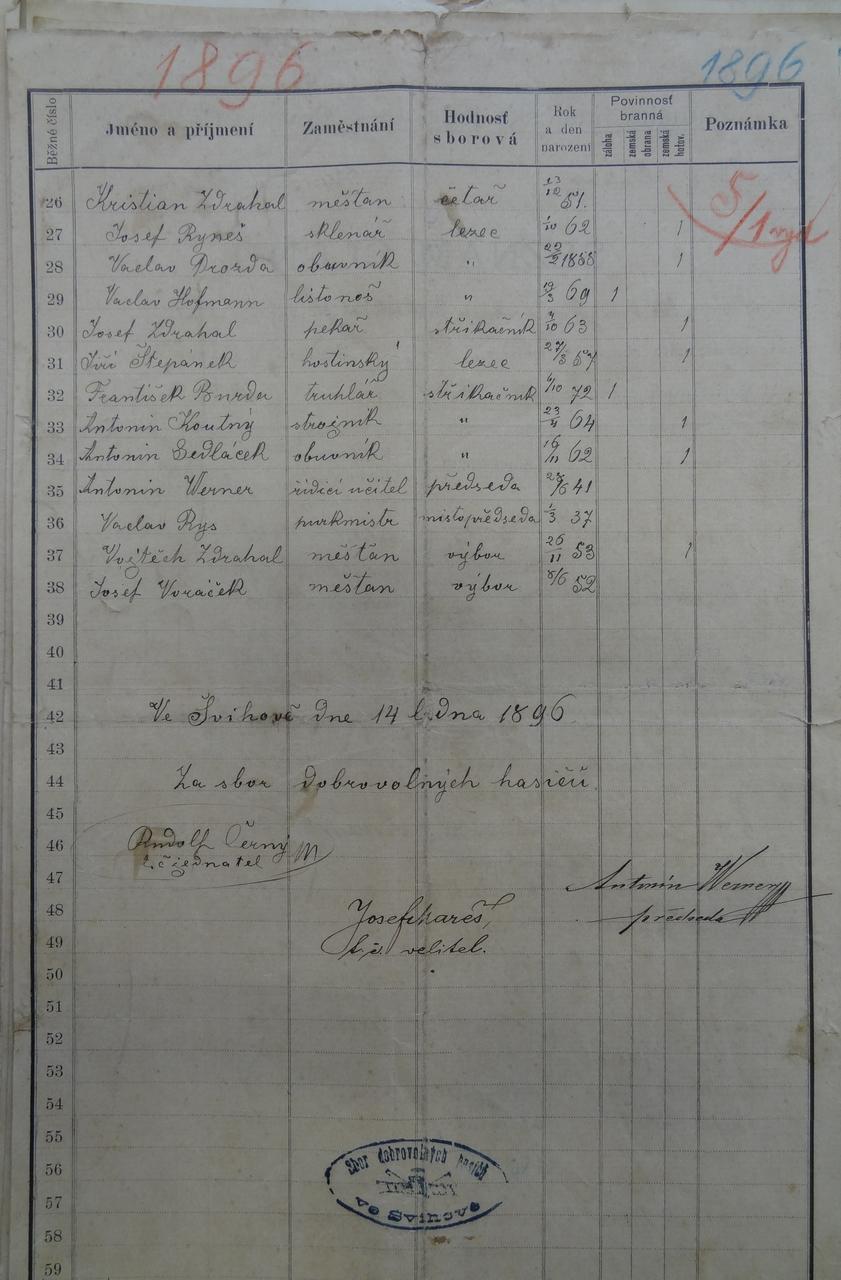 1896 1896
Běžné číslo Jméno a příjmení Zaměstnání Hodnosť sborová Rok a den narození Povinnosť branná záloha zemská obrana zemská hotov. Poznámka
5/1
26 Kristian Zdrahal měšťan četař 13/12 51.
27 Josef Ryneš sklenář lezec 1/10 62 1
28 Vaclav Drozda obuvník " 22/2 1858 1
29 Vaclav Hofmann listonoš " 19/3 69 1
30 Josef Zdrahal pekař střikačník 4/10 63 1
31 Jiří Štěpánek hostinský lezec 27/3 57 1
32 František Burda truhlář střikačník 4/10 72 1
33 Antonin Koutný strojník " 23/4 64 1
34 Antonin Sedláček obuvník " 16/11 62 1
35 Antonin Werner řídící učitel předseda 41
36 Vaclav Rys purkmistr místopředseda 1/3 37
37 Vojtěch Zdrahal měšťan výbor 26/11 53 1
38 Josef Voráček měšťan výbor 8/6 52
39
40
41
42 Ve Švihově dne 14 ledna 1896
43
44 Za sbor dobrovolných hasičů
45
46 Rudolf Černý
t. č. jednatel
47 Antonín Werner
48 Josef Kareš předseda
49 t. č. velitel.
50
51
52
53
54
55
56 Sbor dobrovolných hasičů
57 ve Švihově
58
59